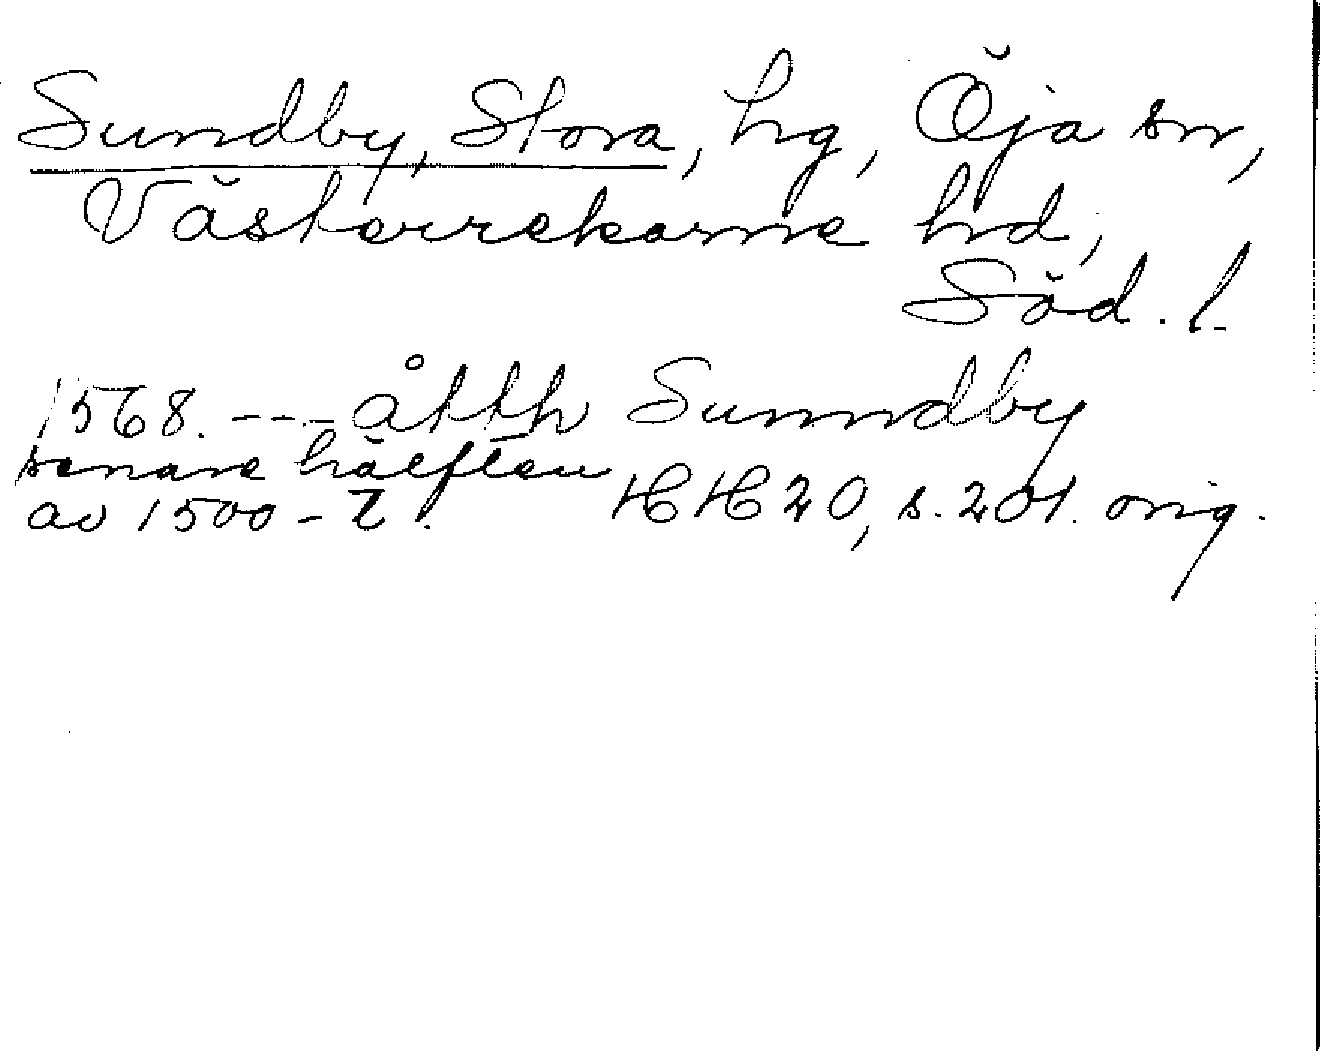 Sundby, Stora, hg, Öja sn,
Västerrekarne hd,
Söd. l.
1568. --- åtth Sunndby
senare hälften
av 1500-t. HH 20, s. 201. orig.